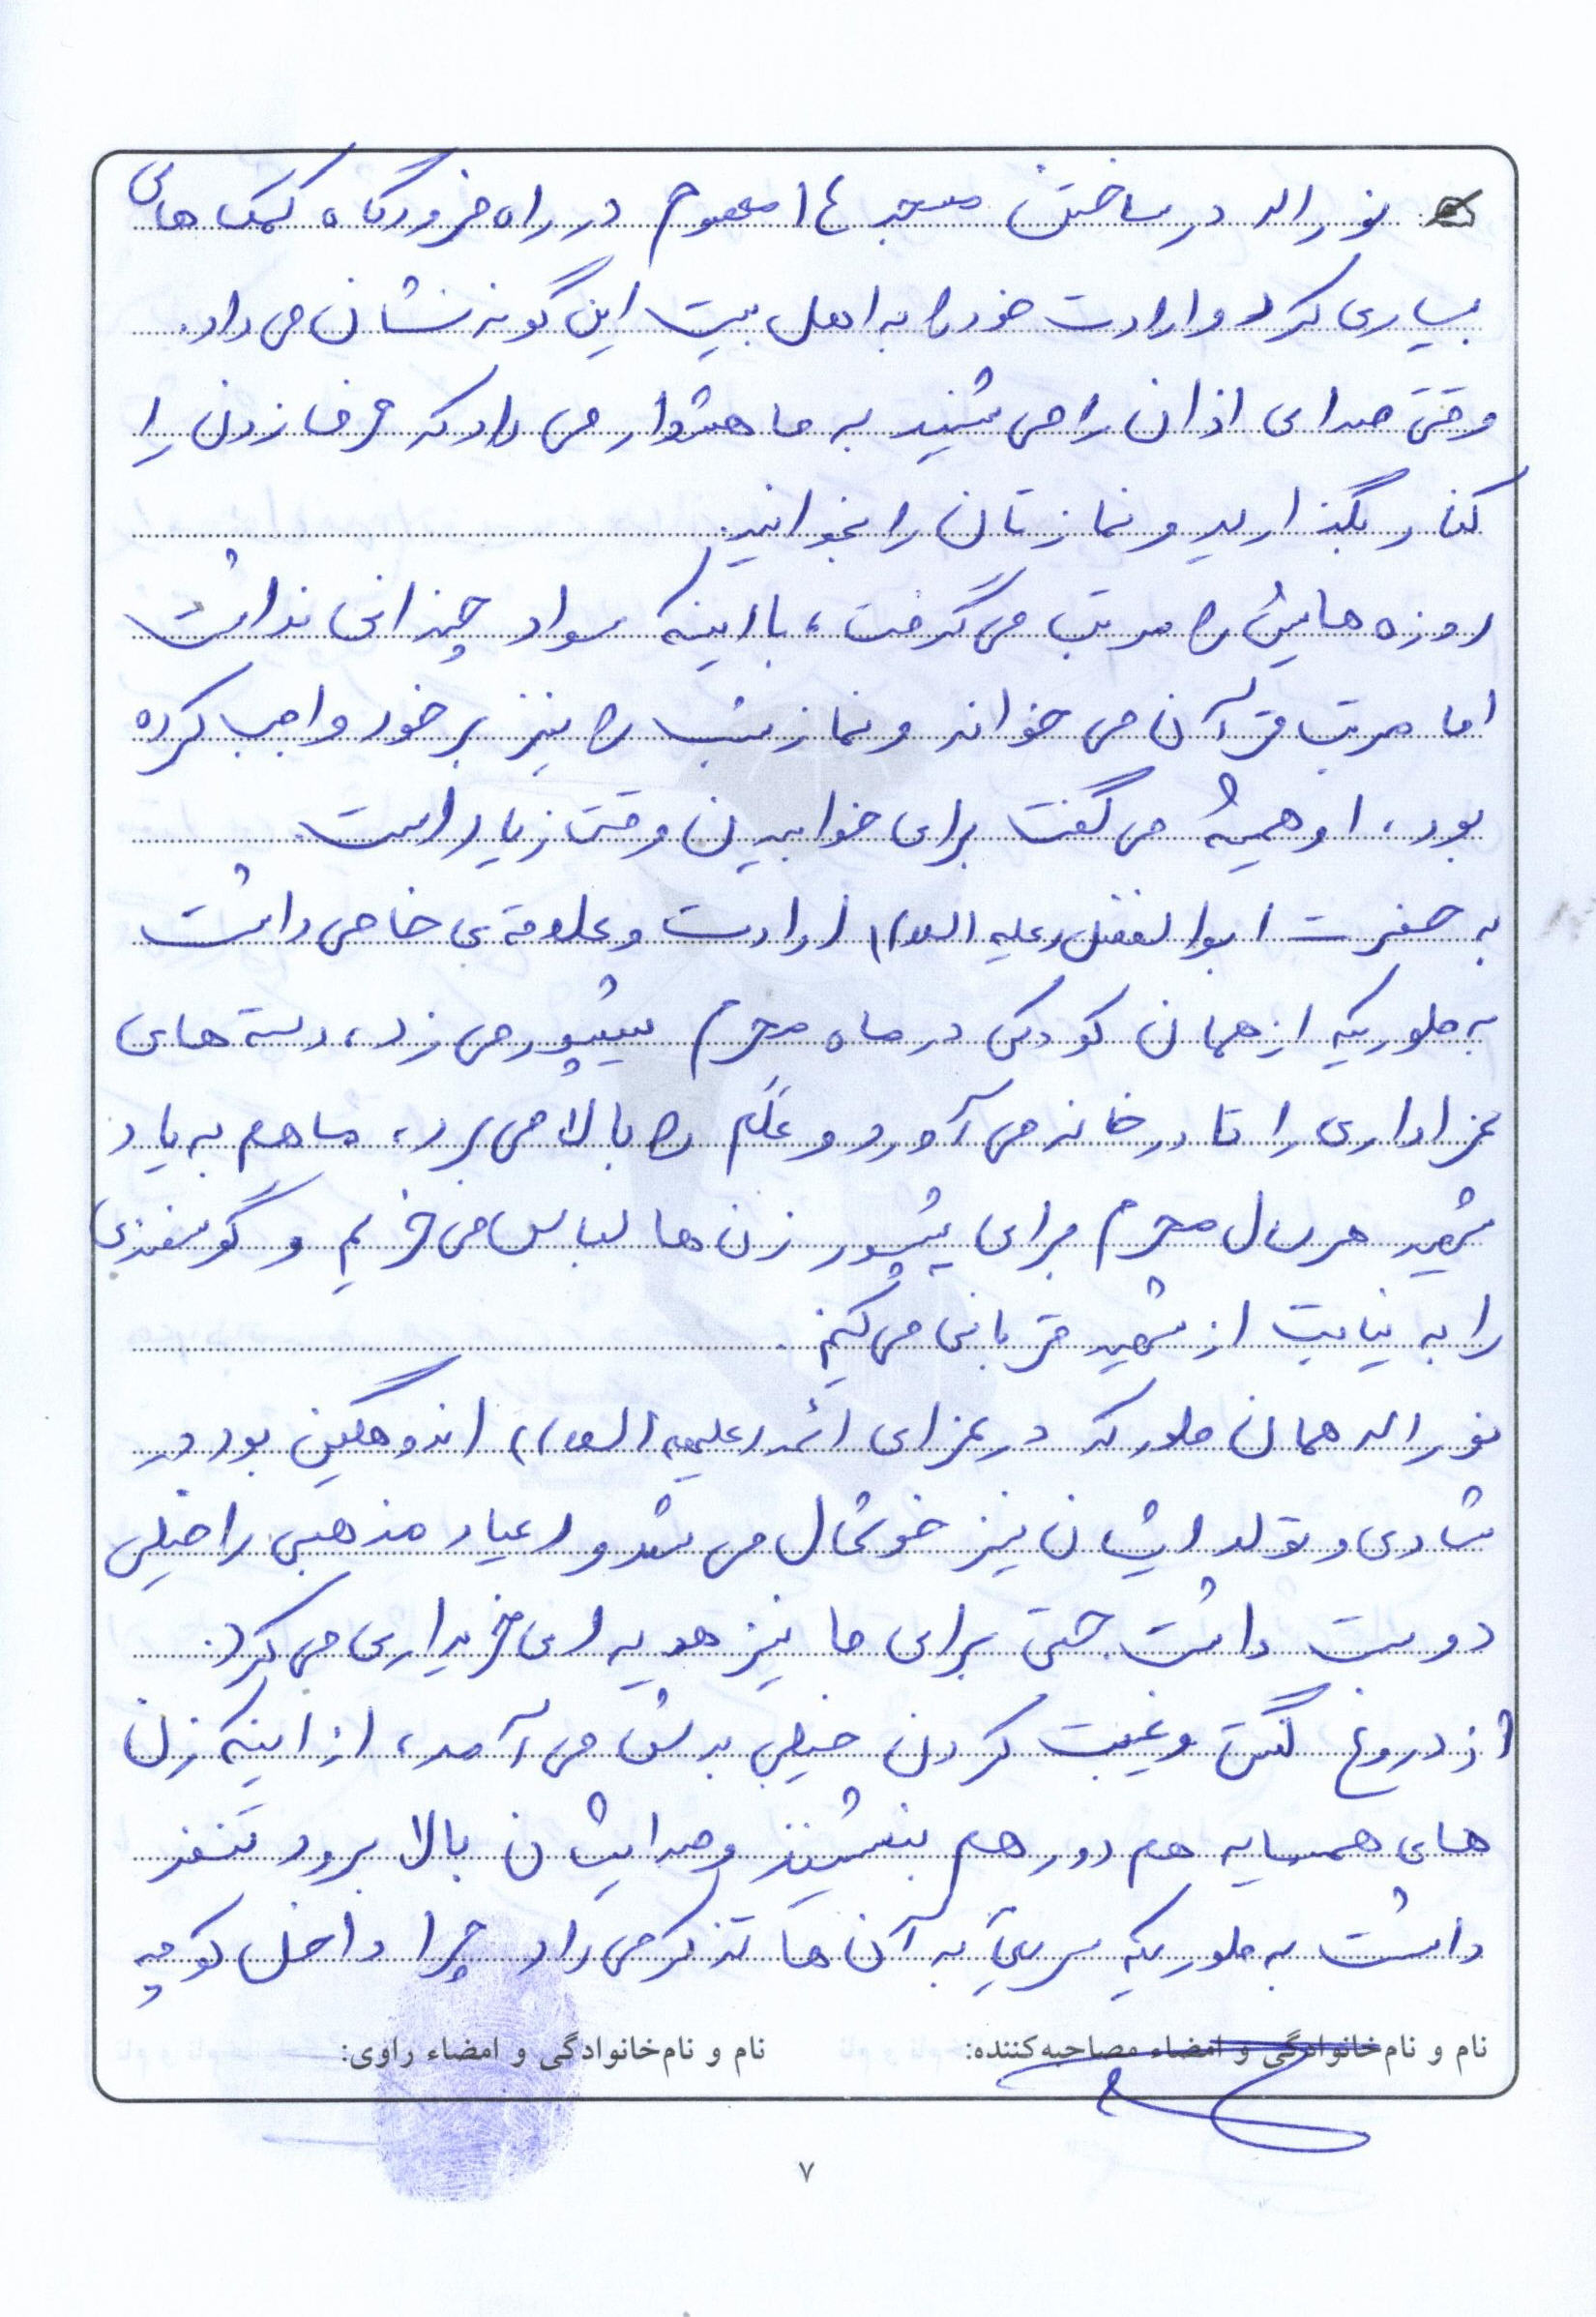 نوراله در ساختن مسجد ۱۴ معصوم در راه فرودگاه کمک های
بسیاری کرد و ارادت خود را به اهل بیت این گونه نشان می داد.
وقتی صدای اذان را می شنید به ما هشدار می داد که حرف زدن را
کنار بگذارید و نمازتان را بخوانید.
روزه هایش را مرتب می گرفت، با اینکه سواد چندانی نداشت
اما مرتب قرآن می خواند و نماز شب را نیز بر خود واجب کرده
بود، او همیشه می گفت برای خوابیدن وقت زیاد است
به حضرت ابوالفضل (علیه السلام) ارادت و علاقه ی خاصی داشت
به طوریکه از همان کودکی در ماه محرم شیپور می زد، دسته های
عزاداری را تا در خانه می آورد و عَلَم را بالا می برد، ما هم به یاد
شهید هر سال محرم برای شیپور زن ها لباس می خریم و گوسفندی
را به نیابت از شهید قربانی می کنیم.
نوراله همان طور که در عزای ائمه (علیهم السلام) اندوهگین بود در
شادی و تولد ایشان نیز خوشحال می شد و اعیاد مذهبی را خیلی
دوست داشت. حتی برای ما نیز هدیه ای خریداری می کرد.
از دروغ گفتن و غیبت کردن خیلی بدش می آمد، از اینکه زن
های همسایه هم دور هم بنشینند و صدایشان بالا برود تنفر
داشت به طوریکه سریعاً به آن ها تذکر می داد چرا داخل کوچه
نام و نام‌خانوادگی و امضاء مصاحبه‌کننده: نام و نام‌خانوادگی و امضاء راوی:
۷